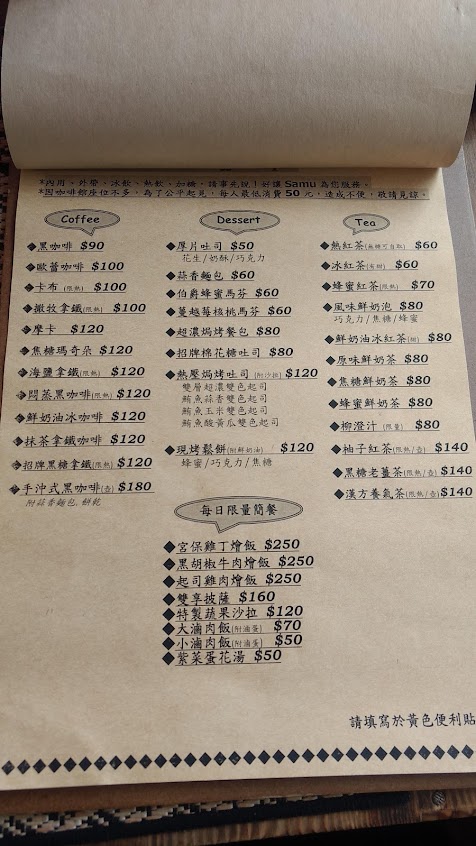 *內用、外帶、冰飲、熱飲、加糖，請事先說！好讓 Samu 為您服務。
*因咖啡館座位不多，為了公平起見，每人最低消費 50 元，造成不便，敬請見諒。
Coffee
◆黑咖啡 $90
◆歐蕾咖啡 $100
◆卡布(限熱) $100
◆撒牧拿鐵(限熱) $100
◆摩卡 $120
◆焦糖瑪奇朵 $120
◆海鹽拿鐵(限熱) $120
◆悶蒸黑咖啡(限熱) $120
◆鮮奶油冰咖啡 $120
◆抹茶拿鐵咖啡 $120
◆招牌黑糖拿鐵(限熱) $120
◆手沖式黑咖啡(壺) $180
附蒜香麵包.餅乾
Dessert
◆厚片吐司 $50
花生/奶酥/巧克力
◆蒜香麵包 $60
◆伯爵蜂蜜馬芬 $60
◆蔓越莓核桃馬芬 $60
◆超濃焗烤餐包 $80
◆招牌棉花糖吐司 $80
◆熱壓焗烤吐司(附沙拉) $120
雙層超濃雙色起司
鮪魚蒜香雙色起司
鮪魚玉米雙色起司
鮪魚酸黃瓜雙色起司
◆現烤鬆餅(附鮮奶油) $120
蜂蜜/巧克力/焦糖
Tea
◆熱紅茶(無糖可自取) $60
◆冰紅茶 $60
◆蜂蜜紅茶(限熱) $70
◆風味鮮奶泡 $80
巧克力/焦糖/蜂蜜
◆鮮奶油冰紅茶 $80
◆原味鮮奶茶 $80
◆焦糖鮮奶茶 $80
◆蜂蜜鮮奶茶 $80
◆柳澄汁 (限量) $80
◆柚子紅茶(限熱/壺) $140
◆黑糖老薑茶(限熱/壺) $140
◆漢方養氣茶(限熱/壺) $140
每日限量簡餐
◆宮保雞丁燴飯 $250
◆黑胡椒牛肉燴飯 $250
◆起司雞肉燴飯 $250
◆雙享披薩 $160
◆特製蔬果沙拉 $120
◆大滷肉飯(附滷蛋) $70
◆小滷肉飯(附滷蛋) $50
◆紫菜蛋花湯 $50
請填寫於黃色便利貼